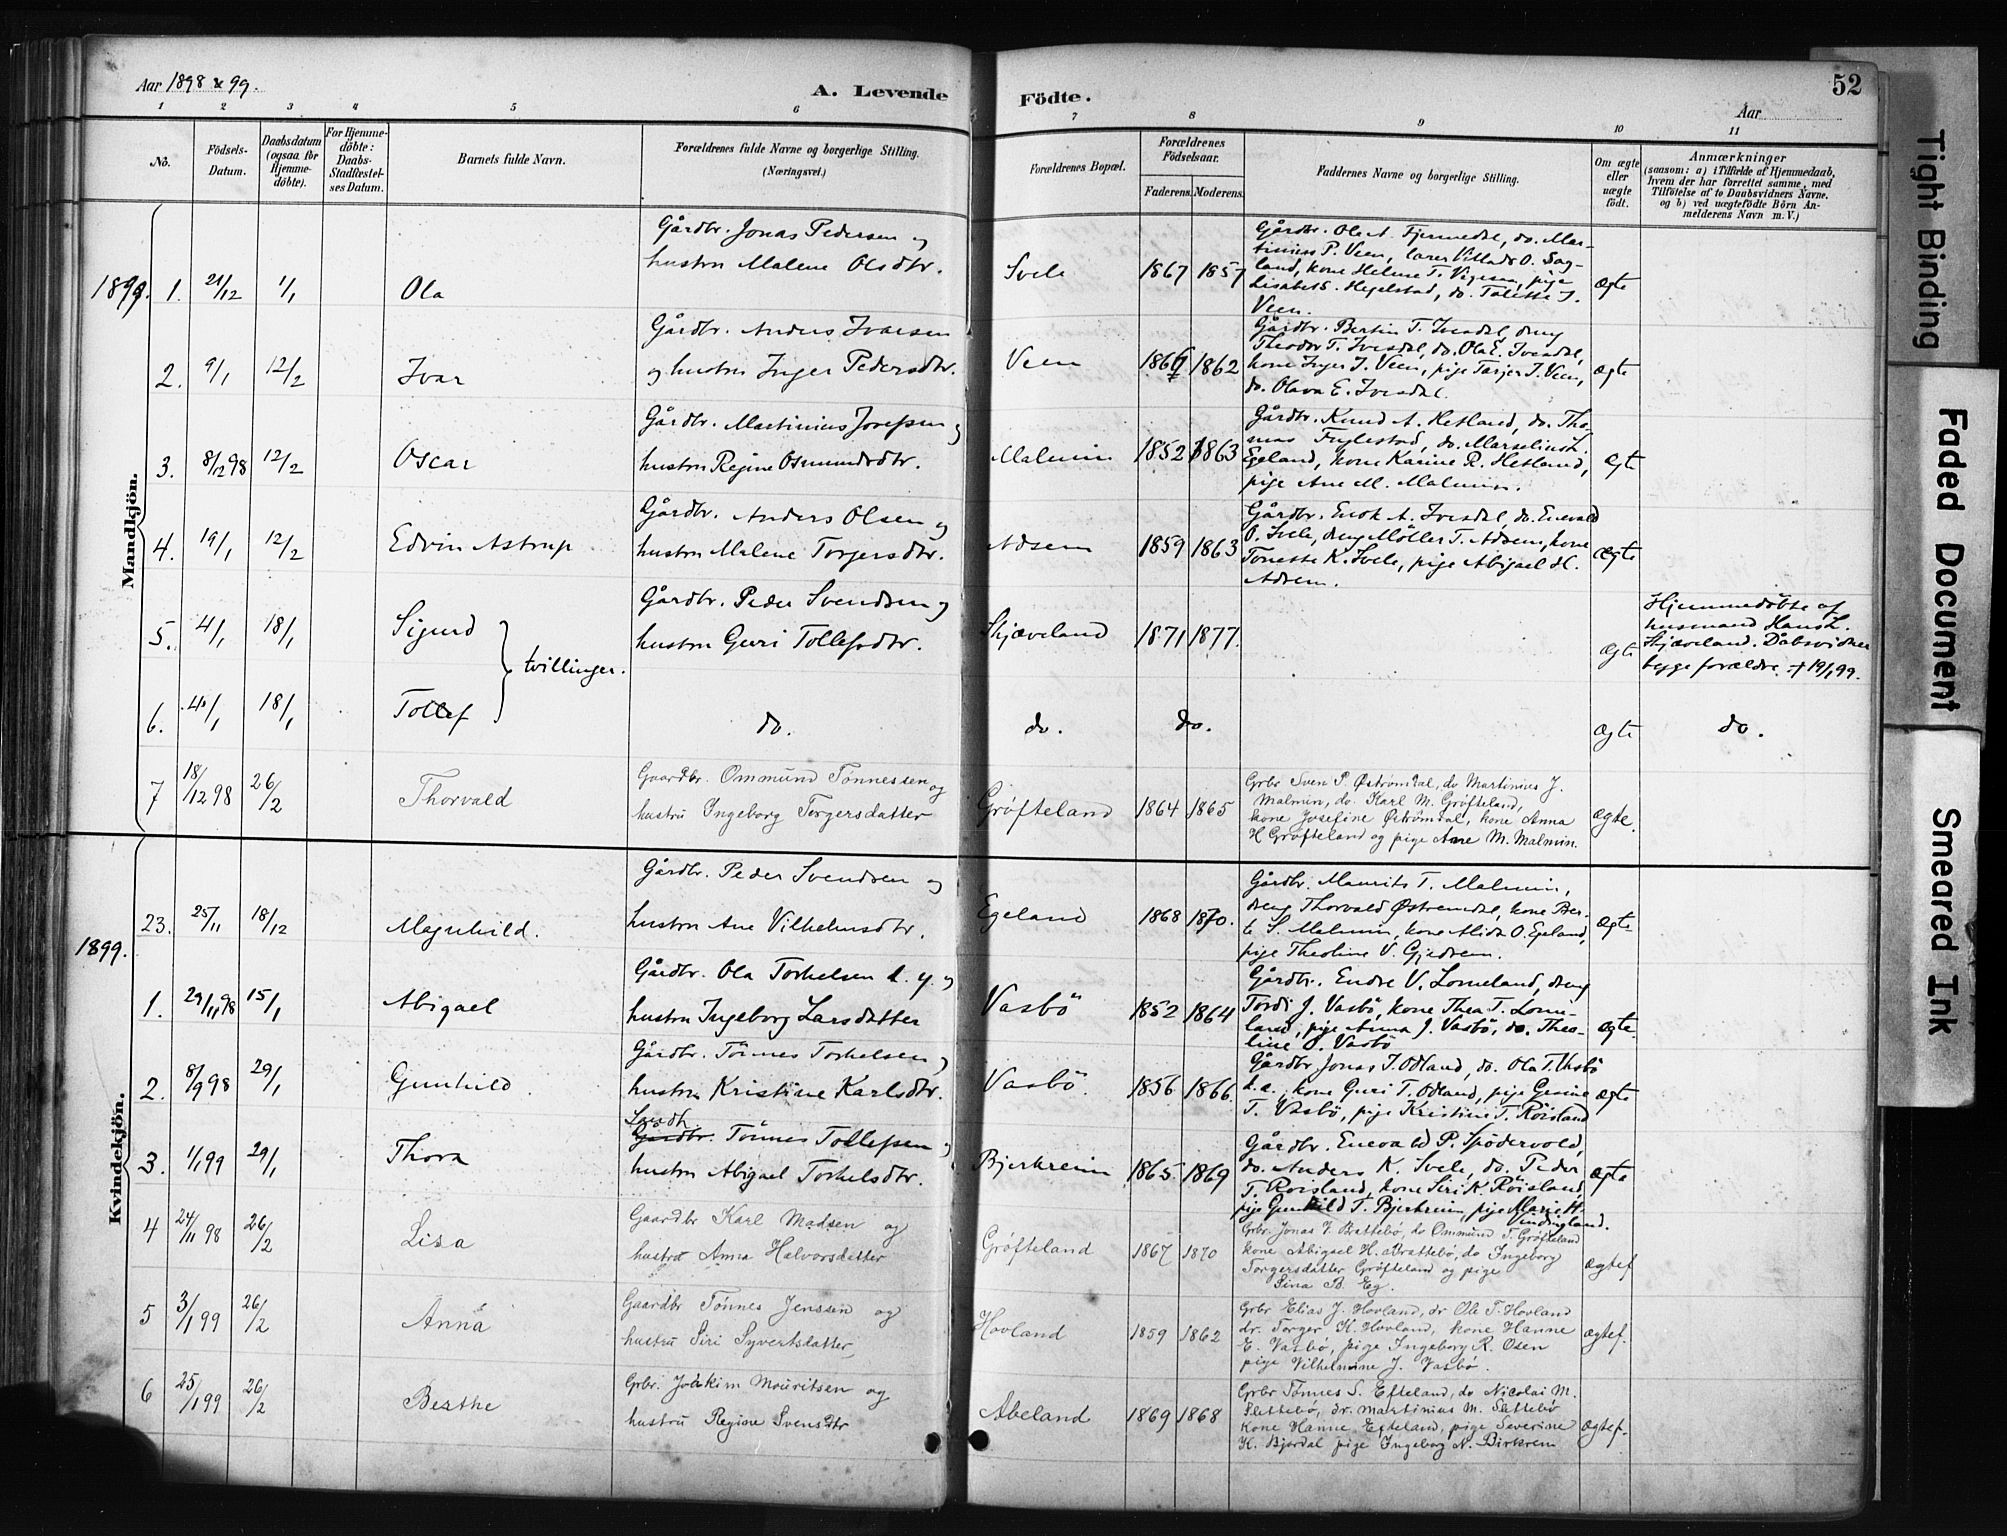 Aar 1898 & 99.
A. Levende
Födte.
Aar
52
1 2 3 4 5 6 7 8 9 10 11
No.
Födsels-
Datum.
Daabsdatum
(ogsaa for
Hjemme-
döbte).
For Hjemme-
döbte:
Daabs-
Stadfæstel-
ses Datum.
Barnets fulde Navn.
Forældrenes fulde Navne og borgerlige Stilling.
(Næringsvei.)
Forældrenes Bopæl.
Forældrenes
Födselsaar.
Faderens. Moderens.
Faddernes Navne og borgerlige Stilling.
Om ægte
eller
uægte
födt.
Anmærkninger
(saasom: a) i Tilfælde af Hjemmedaab,
hvem der har forrettet samme, med
Tilföielse af to Daabsvidners Navne.
og b) ved uægtefödte Börn An-
melderens Navn m. V.)
Mandkjön.
1899. 1. 21/12 1/1 Ola
Gårdbr. Jonas Pedersen og
hustru Malene Olsdtr.
Svele 1867 1857
Gårdbr. Ole A. Fjermedal, do. Mar-
tinius P. Veen, lærer
land, kone Helene T. Vigesa, pige
Lisabet S. Hegelstad, do. Talette J.
Veen.
ægte
2. 9/1 12/2 Ivar
Gårdbr. Anders Ivarsen
og hustru Inger Pedersdtr.
Veen 1862
Gårdbr. Bertin T. Ivesdal, dreng
Theodor T. Ivesdal, do. Ola E. Ivesdal,
kone Inger J. Veen, pige Tarjer J. Veen,
do. Olava E. Ivesdal.
ægte
3. 8/12 98 12/2 Oscar
Gårdbr. Martinius Josefsen og
hustru Regine Osmundsdtr.
Malmin 1852 1863
Gårdbr. Knud A. Hetland, do. Tho-
mas Fuglestad, do. Marselius L.
Egeland, kone Karine R. Hetland,
pige Ane M. Malmin.
ægte
4. 19/1 12/2 Edvin Astrup
Gårdbr. Anders Olsen og
hustru Malene Torgersdtr.
Adsem 1859 1863
Gårdbr. Enok A. Ivesdal, do. Enevald
O. Svele, dreng Möller T. Adsem, kone
Tonette K. Svele, pige Abigael H.
Adsem.
ægte
5. 4/1 18/1 Sigurd
tvillinger.
Gårdbr. Peder Svendsen og
hustru Guri Tollefsdtr.
Skjæveland 1871 1877.
ægte
Hjemmedöbte af
husmand Hans L.
Skjæveland. Dåbsvidner
begge forældre. † 19/1 99.
6. 4/1 18/1 Tollef
do. do. do. ægte do.
7 18/12 98 26/2 Thorvald
Gaardbr. Ommund Tønnessen og
hustru Ingeborg Torgersdatter
Grøfteland 1864 1865
Grbr Sven P. Østrømdal, do Martinius J.
Malmin, do. Karl M. Grøfteland,
kone Josefine Østrømdal, kone Anna
H Grøfteland og pige Ane M. Malmin.
ægte.
Kvindekjön.
23. 25/11 18/12 Magnhild.
Gårdbr. Peder Svendsen og
hustru Ane Vilhelmsdtr.
Egeland 1868 1870.
Gårdbr. Maurits T. Malmin,
dreng Thorvald Østremdal, kone Ber-
te S. Malmin, kone Alida O. Egeland,
pige Theoline V. Gjedrem.
ægte
1899.
1. 29/11 98 15/1 Abigael
Gårdbr. Ola Torkelsen d. y. og
hustru Ingeborg Larsdatter
Vasbö 1852 1864
Gårdbr. Endre V. Lomeland, dreng
Tordi J. Vasbö, kone Thea T. Lome-
land, pige Anna J. Vasbö, do. Theo-
line O. Vasbö
ægte.
2. 8/9 98 29/1 Gunhild.
Gårdbr. Tönnes Torkelsen og
hustru Kristine Karlsdtr.
Vasbö 1856 1866.
Gårdbr Jonas T. Odland, do. Ola T. Vasbö
d. æ., kone Guri T. Odland, pige Gesine
T. Vasbö, pige Kristine T. Röisland
ægte
3. 1/1 99 29/1 Thora
Gårdbr. Tönnes Tollefsen og
hustru Abigael Torkelsdtr.
Bjerkreim 1865. 1869
Gårdbr. Enevald P. Spödervold,
do. Anders K. Svele, do. Peder
T. Röisland, kone Siri K. Röisland,
pige Gunhild T. Bjerkreim, pige Marie H.
Vindingland.
ægte
4 24/11 98 26/2 Lisa
Gaardbr Karl Madsen og
hustru Anna Halvorsdatter
Grøfteland 1867 1870
Grbr. Jonas V. Brattebö, do Ommund T. Grøfteland
kone Abigael H. Brattebö, do Ingeborg
Torgersdatter Grøfteland og pige
Sina B. Eg.
ægtef
5 3/1 99 26/2 Anna
Gaardbr Tönnes Jenssen og
hustru Siri Syvertsdatter,
Hovland 1859 1862
Grbr Elias J. Hovland, dr Ole T. Hovland
dr. Torger K. Hovland, kone Hanne
E. Vasbø, pige Ingeborg R. Osen
pige Vilhelmine J. Vasbø.
ægtef.
6 25/1 99 26/2 Berthe
Grbr. Joakim Mouritsen og
hustru Regine Svensdtr
Abeland 1869 1868
Grbr Tønnes S. Efteland, do Nicolai M.
Slettebö, dr. Martinius M. Slettebö
kone Hanne Efteland, pige Severine
H. Bjordal pige Ingeborg N. Birkrem
ægtef.
Tight Binding
Faded Document
Smeared Ink